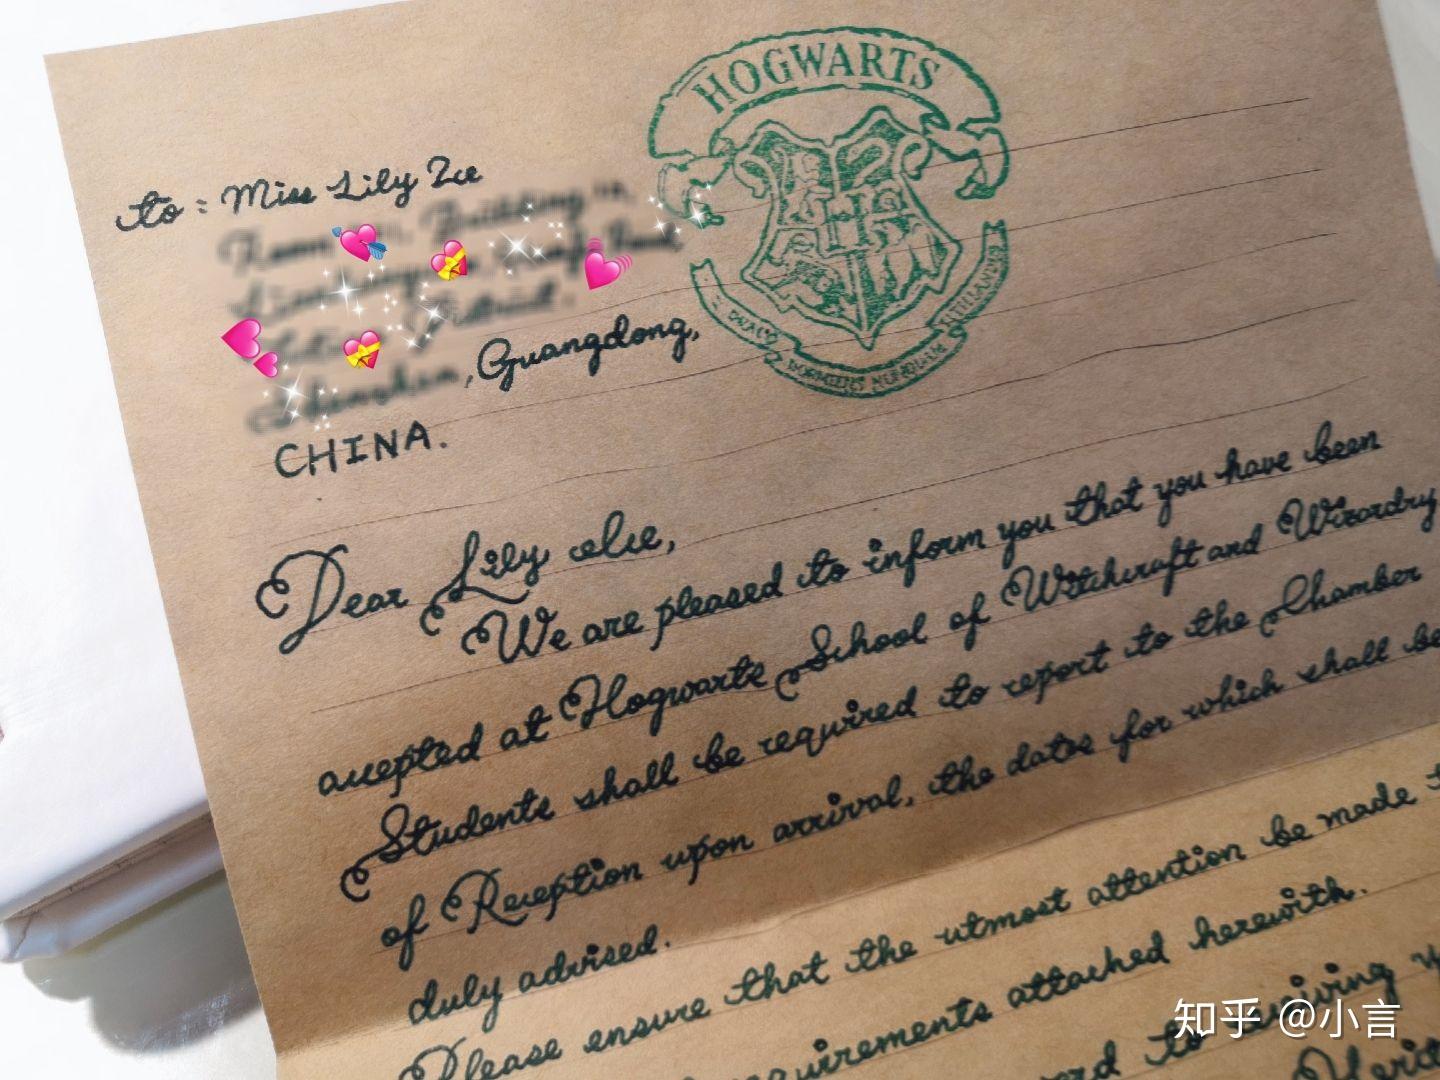 HOGWARTS
DRACO DORMIENS NUNQUAM TITILLANDUS
to : Miss Lily Ice
Guangdong,
CHINA.
Dear Lily Ice,
We are pleased to inform you that you have been
accepted at Hogwarts School of Witchcraft and Wizardry
Students shall be required to report to the Chamber
of Reception upon arrival, the dates for which shall be
duly advised.
Please ensure that the utmost attention be made t
requirements attached herewith.
to receiving y
知乎 @小言